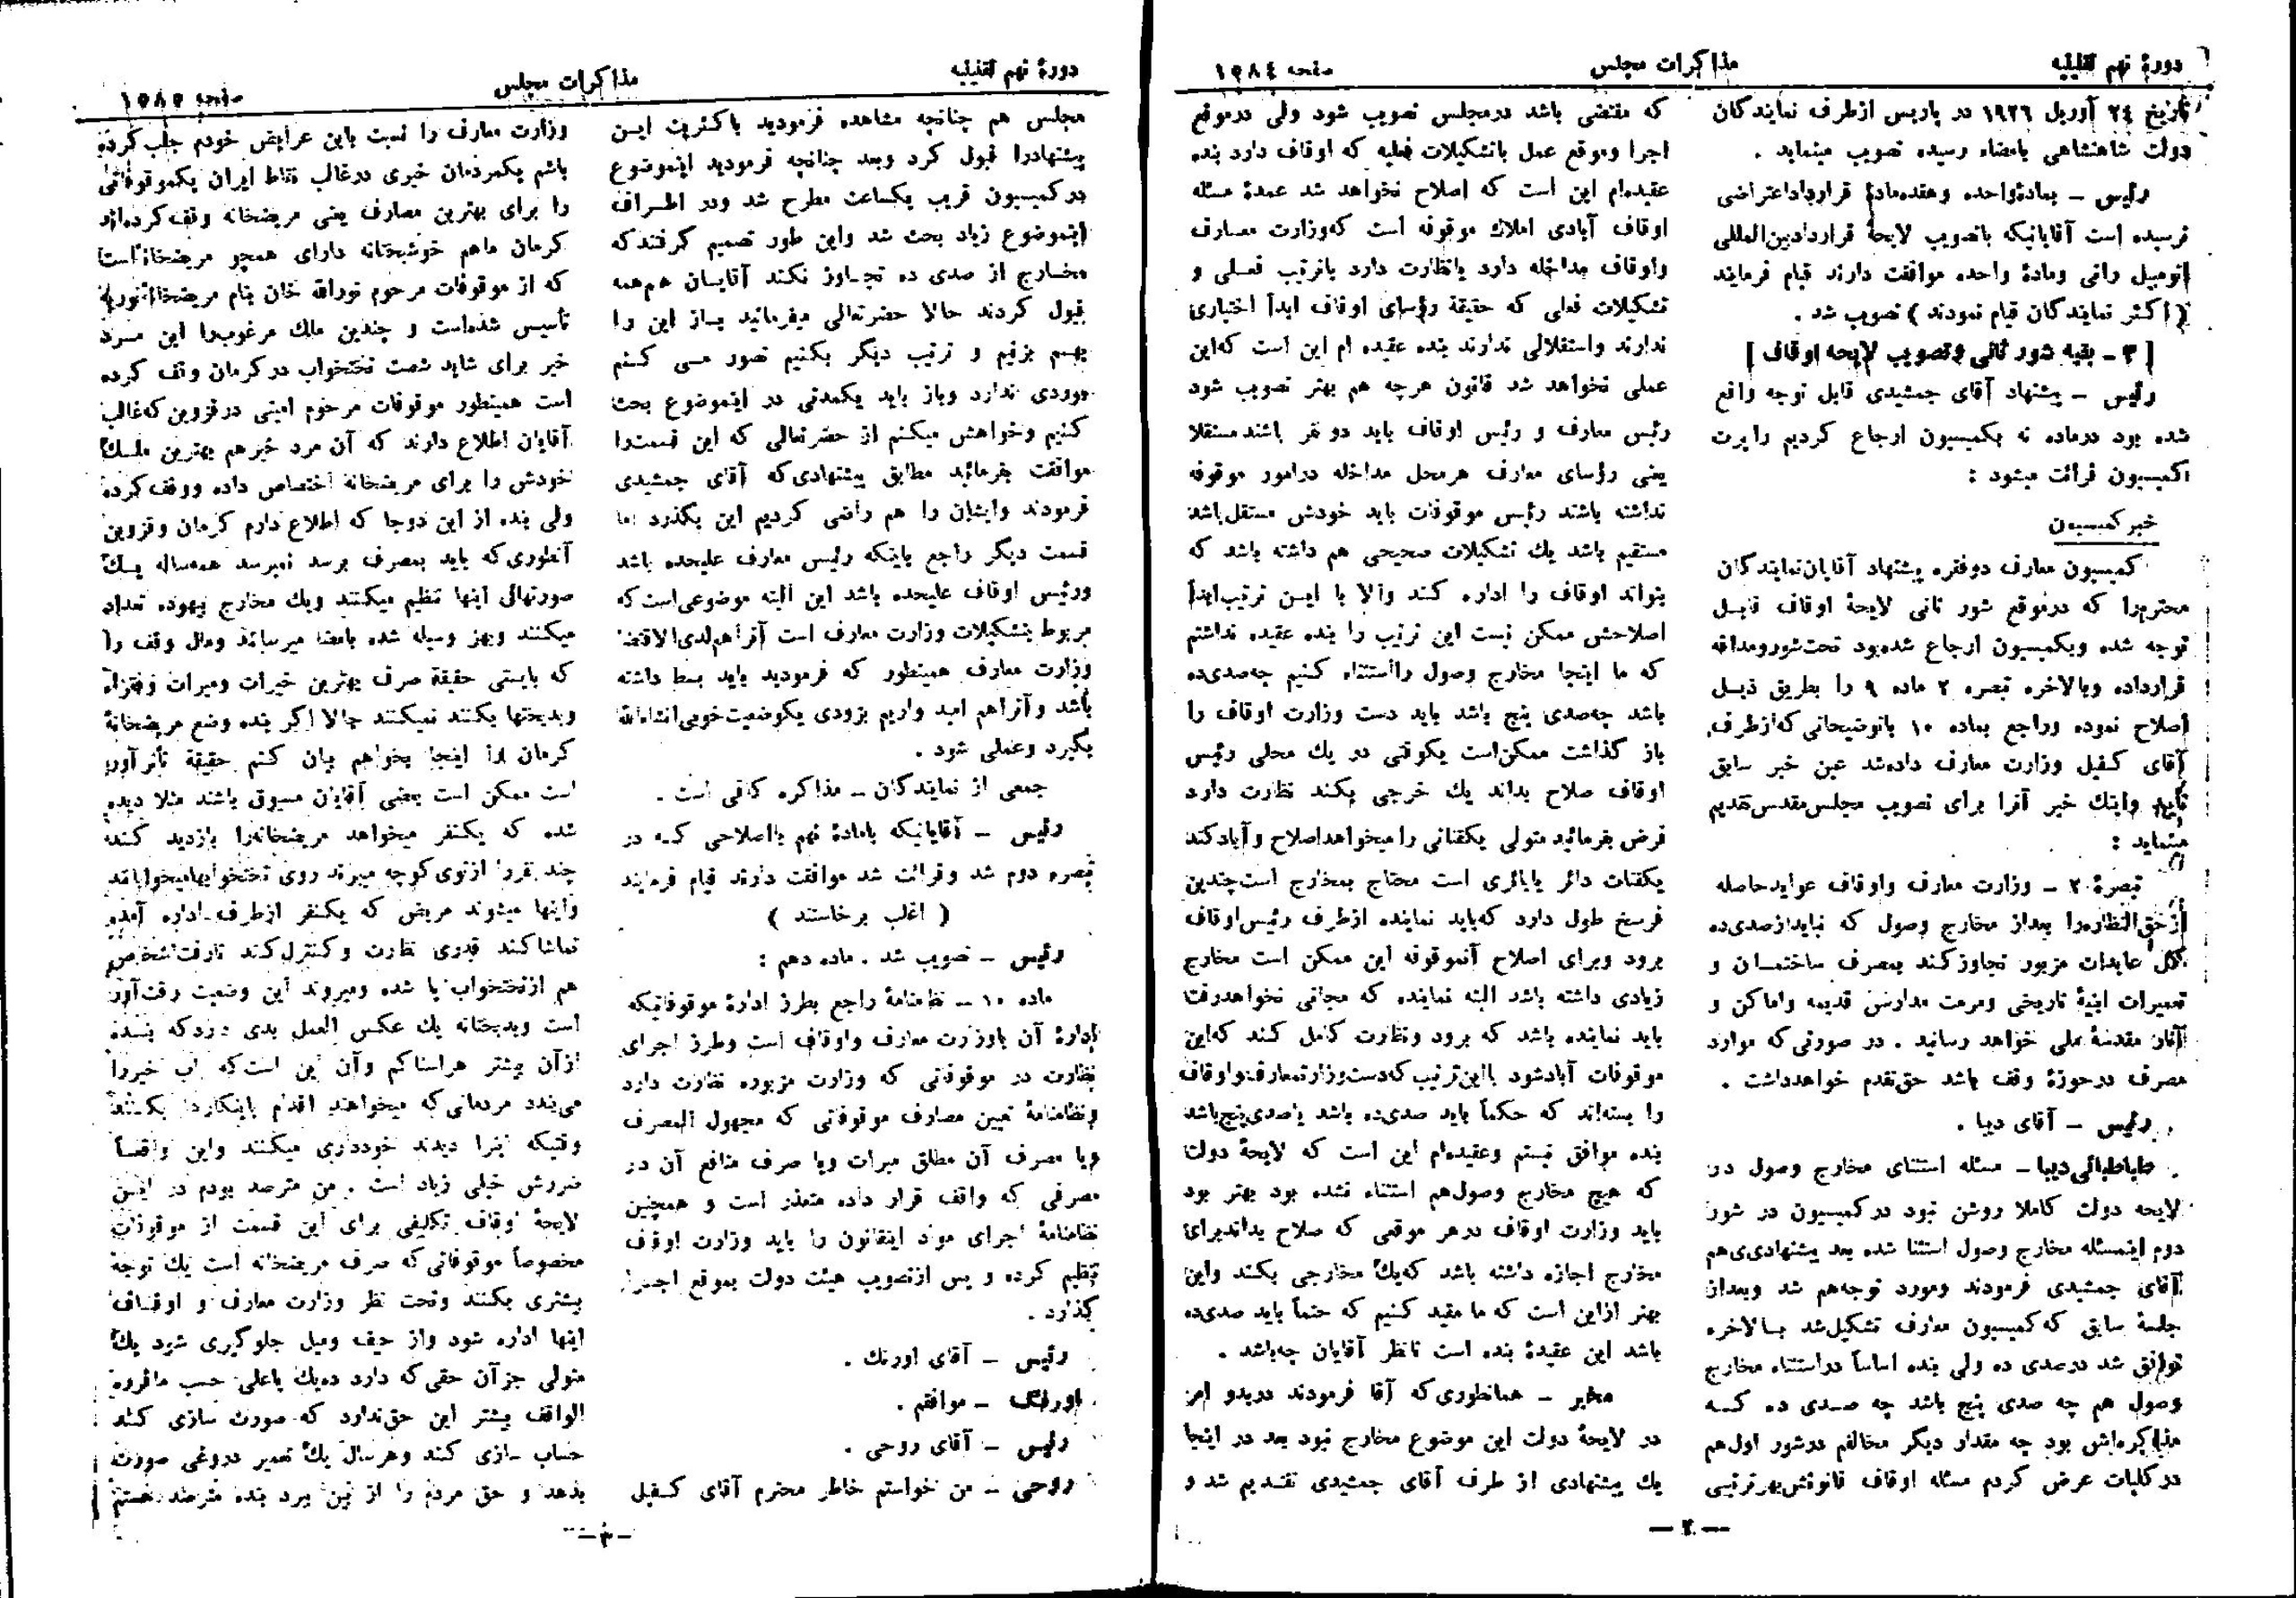 دورۀ نهم تقنینیه
مذاکرات مجلس
صفحه ۱۵۸٤
تاریخ ٢٤ آوریل ۱۹۲٦ در پاریس ازطرف نمایندگان
دولت شاهنشاهی بامضاء رسیده تصویب مینماید .
رئیس – بمادۀواحده وهفده‌مادۀ قرارداداعتراضی
نرسیده است آقایانیکه باتصویب لایحۀ قراردادبین‌المللی
اتومبیل رانی ومادۀ واحده موافقت دارند قیام فرمایند
( اکثر نمایندگان قیام نمودند ) تصویب شد .
[ ۳ – بقیه شور ثانی وتصویب لایحه اوقاف ]
رئیس – پیشنهاد آقای جمشیدی قابل توجه واقع
شده بود درماده نه بکمیسیون ارجاع کردیم راپرت
کمیسیون قرائت میشود :
خبر کمیسیون
کمیسیون معارف دوفقره پیشنهاد آقایان‌نمایندگان
محترم‌را که درموقع شور ثانی لایحۀ اوقاف قابل
توجه شده وبکمیسیون ارجاع شده‌بود تحت‌شورومداقه
قرارداده وبالاخره تبصره ۲ ماده ۹ را بطریق ذیل
اصلاح نموده وراجع بماده ۱۰ باتوضیحاتی که‌ازطرف
آقای کفیل وزارت معارف داده‌شد عین خبر سابق
تأیید واینك خبر آنرا برای تصویب مجلس‌مقدس‌تقدیم
مینماید :
تبصرۀ ۲ – وزارت معارف واوقاف عوایدحاصله
ازحق‌النظاره‌را بعداز مخارج وصول که نبایدازصدی‌ده
کل عایدات مزبور تجاوزکند بمصرف ساختمان و
تعمیرات ابنیۀ تاریخی ومرمت مدارس قدیمه واماکن و
آثار مقدسۀملی خواهد رسانید . در صورتی‌که موارد
مصرف درحوزۀ وقف باشد حق‌تقدم خواهدداشت .
رئیس – آقای دیبا .
طباطبائی‌دیبا – مسئله استثنای مخارج وصول در
لایحه دولت کاملا روشن نبود درکمیسیون در شور
دوم اینمسئله مخارج وصول استثنا شده بعد پیشنهادی‌هم
آقای جمشیدی فرمودند ومورد توجه‌هم شد وبعداز
جلسۀ سابق که‌کمیسیون معارف تشکیل‌شد بالاخره
توافق شد درصدی ده ولی بنده اساساً دراستثناء مخارج
وصول هم چه صدی پنج باشد چه صدی ده که
مذاکره‌اش بود چه مقدار دیگر مخالفم درشور اول‌هم
درکلیات عرض کردم مسئله اوقاف قانونش‌بهرترتیبی
که مقتضی باشد درمجلس تصویب شود ولی درموقع
اجرا وموقع عمل باتشکیلات فعلیه که اوقاف دارد بنده
عقیده‌ام این است که اصلاح نخواهد شد عمدۀ مسئله
اوقاف آبادی املاك موقوفه است که‌وزارت معارف
واوقاف مداخله دارد یانظارت دارد باترتیب فعلی و
تشکیلات فعلی که حقیقة رؤسای اوقاف ابداً اختیاری
ندارند واستقلالی ندارند بنده عقیده ام این است که‌این
عملی نخواهد شد قانون هرچه هم بهتر تصویب شود
رئیس معارف و رئیس اوقاف باید دو نفر باشند مستقلا
یعنی رؤسای معارف هرمحل مداخله درامور موقوفه
نداشته باشند رئیس موقوفات باید خودش مستقل‌باشد
مستقیم باشد یك تشکیلات صحیحی هم داشته باشد که
بتواند اوقاف را اداره کند والا با این ترتیب‌ابداً
اصلاحش ممکن نیست این ترتیب را بنده عقیده نداشتم
که ما اینجا مخارج وصول رااستثناء کنیم چه‌صدی‌ده
باشد چه‌صدی پنج باشد باید دست وزارت اوقاف را
باز گذاشت ممکن‌است یکوقتی در یك محلی رئیس
اوقاف صلاح بداند یك خرجی بکند نظارت دارد
فرض بفرمائید متولی یکقناتی را میخواهداصلاح وآبادکند
یکقنات دائر یابائری است محتاج بمخارج است‌چندین
فرسخ طول دارد که‌باید نماینده ازطرف رئیس‌اوقاف
برود وبرای اصلاح آنموقوفه این ممکن است مخارج
زیادی داشته باشد البته نماینده که مجانی نخواهدرفت
باید نماینده باشد که برود ونظارت کامل کند که‌این
موقوفات آبادشود بااین‌ترتیب که‌دست‌وزارتمعارف‌واوقاف
را بسته‌اند که حکماً باید صدی‌ده باشد یاصدی‌پنج‌باشد
بنده موافق نیستم وعقیده‌ام این است که لایحۀ دولت
که هیچ مخارج وصول‌هم استثناء نشده بود بهتر بود
باید وزارت اوقاف درهر موقعی که صلاح بداندبرای
مخارج اجازه داشته باشد که‌یك مخارجی بکند واین
بهتر ازاین است که ما مقید کنیم که حتماً باید صدی‌ده
باشد این عقیدۀ بنده است تانظر آقایان چه‌باشد .
مخبر – همانطوری‌که آقا فرمودند دربدو امر
در لایحۀ دولت این موضوع مخارج نبود بعد در اینجا
یك پیشنهادی از طرف آقای جمشیدی تقدیم شد و
— ۲ —
دورۀ نهم تقنینیه
مذاکرات مجلس
صفحه ۱۵۸۵
مجلس هم چنانچه مشاهده فرمودید باکثریت این
پیشنهادرا قبول کرد وبعد چنانچه فرمودید اینموضوع
درکمیسیون قریب یکساعت مطرح شد ودر اطراف
اینموضوع زیاد بحث شد واین طور تصمیم گرفتندکه
مخارج از صدی ده تجاوز نکند آقایان هم‌همه
قبول کردند حالا حضرتعالی میفرمائید باز این را
بهم بزنیم و ترتیب دیگر بکنیم تصور می کنم
موردی ندارد وباز باید یکمدتی در اینموضوع بحث
کنیم وخواهش میکنم از حضرتعالی که این قسمت‌را
موافقت بفرمائید مطابق پیشنهادی‌که آقای جمشیدی
فرمودند وایشان را هم راضی کردیم این بگذرد اما
قسمت دیگر راجع باینکه رئیس معارف علیحده باشد
ورئیس اوقاف علیحده باشد این البته موضوعی‌است‌که
مربوط بتشکیلات وزارت معارف است آنراهم‌لدی‌الاقتضا
وزارت معارف همینطور که فرمودید باید بسط داشته
باشد وآنراهم امید واریم بزودی یکوضعیت‌خوبی‌انشاءالله
بگیرد وعملی شود .
جمعی از نمایندگان – مذاکره کافی است .
رئیس – آقایانیکه بامادۀ نهم بااصلاحی که در
تبصره دوم شد وقرائت شد موافقت دارند قیام فرمایند
( اغلب برخاستند )
رئیس – تصویب شد . ماده دهم :
ماده ۱۰ – نظامنامۀ راجع بطرز ادارۀ موقوفاتیکه
ادارۀ آن باوزارت معارف واوقاف است وطرز اجرای
نظارت در موقوفاتی که وزارت مزبوره نظارت دارد
ونظامنامۀ تعیین مصارف موقوفاتی که مجهول المصرف
ویا مصرف آن مطلق مبرات ویا صرف منافع آن در
مصرفی که واقف قرار داده متعذر است و همچنین
نظامنامۀ اجرای مواد اینقانون را باید وزارت اوقاف
تنظیم کرده و پس ازتصویب هیئت دولت بموقع اجرا
گذارد .
رئیس – آقای اورنك .
اورنگ – موافقم .
رئیس – آقای روحی .
روحی – من خواستم خاطر محترم آقای کفیل
وزارت معارف را نسبت باین عرایض خودم جلب‌کرده
باشم یکمردمان خیری درغالب نقاط ایران یکموقوفاتی
را برای بهترین مصارف یعنی مریضخانه وقف‌کرده‌اند
کرمان ماهم خوشبختانه دارای همچو مریضخانۀاست
که از موقوفات مرحوم نورالله خان بنام مریضخانۀنوریه
تأسیس شده‌است و چندین ملك مرغوب‌را این مرد
خیر برای شاید شصت تختخواب درکرمان وقف کرده
است همینطور موقوفات مرحوم امینی درقزوین که‌غالب
آقایان اطلاع دارند که آن مرد خیرهم بهترین ملك
خودش را برای مریضخانه اختصاص داده ووقف‌کرده
ولی بنده از این دوجا که اطلاع دارم کرمان وقزوین
آنطوری‌که باید بمصرف برسد نمیرسد همه‌ساله یك
صورتهائی اینها تنظیم میکنند ویك مخارج بیهوده تعداد
میکنند وبهر وسیله شده بامضا میرسانند ومال وقف را
که بایستی حقیقة صرف بهترین خیرات ومبرات وفقراء
وبدبختها بکنند نمیکنند حالا اگر بنده وضع مریضخانۀ
کرمان را اینجا بخواهم بیان کنم حقیقة تأثرآور
است ممکن است بعضی آقایان مسبوق باشند مثلا دیده
شده که یکنفر میخواهد مریضخانه‌را بازدید کند
چند نفررا ازتوی‌کوچه میبرند روی تختخوابهامیخوابانند
واینها میشوند مریض که یکنفر ازطرف اداره آمده
تماشاکند قدری نظارت وکنترل‌کند تارفت‌اشخاص
هم ازتختخواب پا شده ومیروند این وضعیت رقت‌آور
است وبدبختانه یك عکس العمل بدی دارد‌که بنده
ازآن بیشتر هراسناکم وآن این است‌که باب خیررا
می‌بندد مردمانی‌که میخواهند اقدام باینکارها بکنند
وقتیکه اینرا دیدند خودداری میکنند واین واقعاً
ضررش خیلی زیاد است . من مترصد بودم در این
لایحۀ اوقاف تکلیفی برای این قسمت از موقوفات
مخصوصاً موقوفاتی‌که صرف مریضخانه است یك توجه
بیشتری بکنند وتحت نظر وزارت معارف و اوقاف
اینها اداره شود واز حیف ومیل جلوگیری شود یك
متولی جزآن حقی‌که دارد ده‌یك یاعلی حسب ماقرره
الواقف بیشتر این حق‌ندارد که صورت سازی کند
حساب سازی کند وهرسال یك تعمیر دروغی صورت
بدهد و حق مردم را از بین ببرد بنده مترصد هستم
— ۳ —